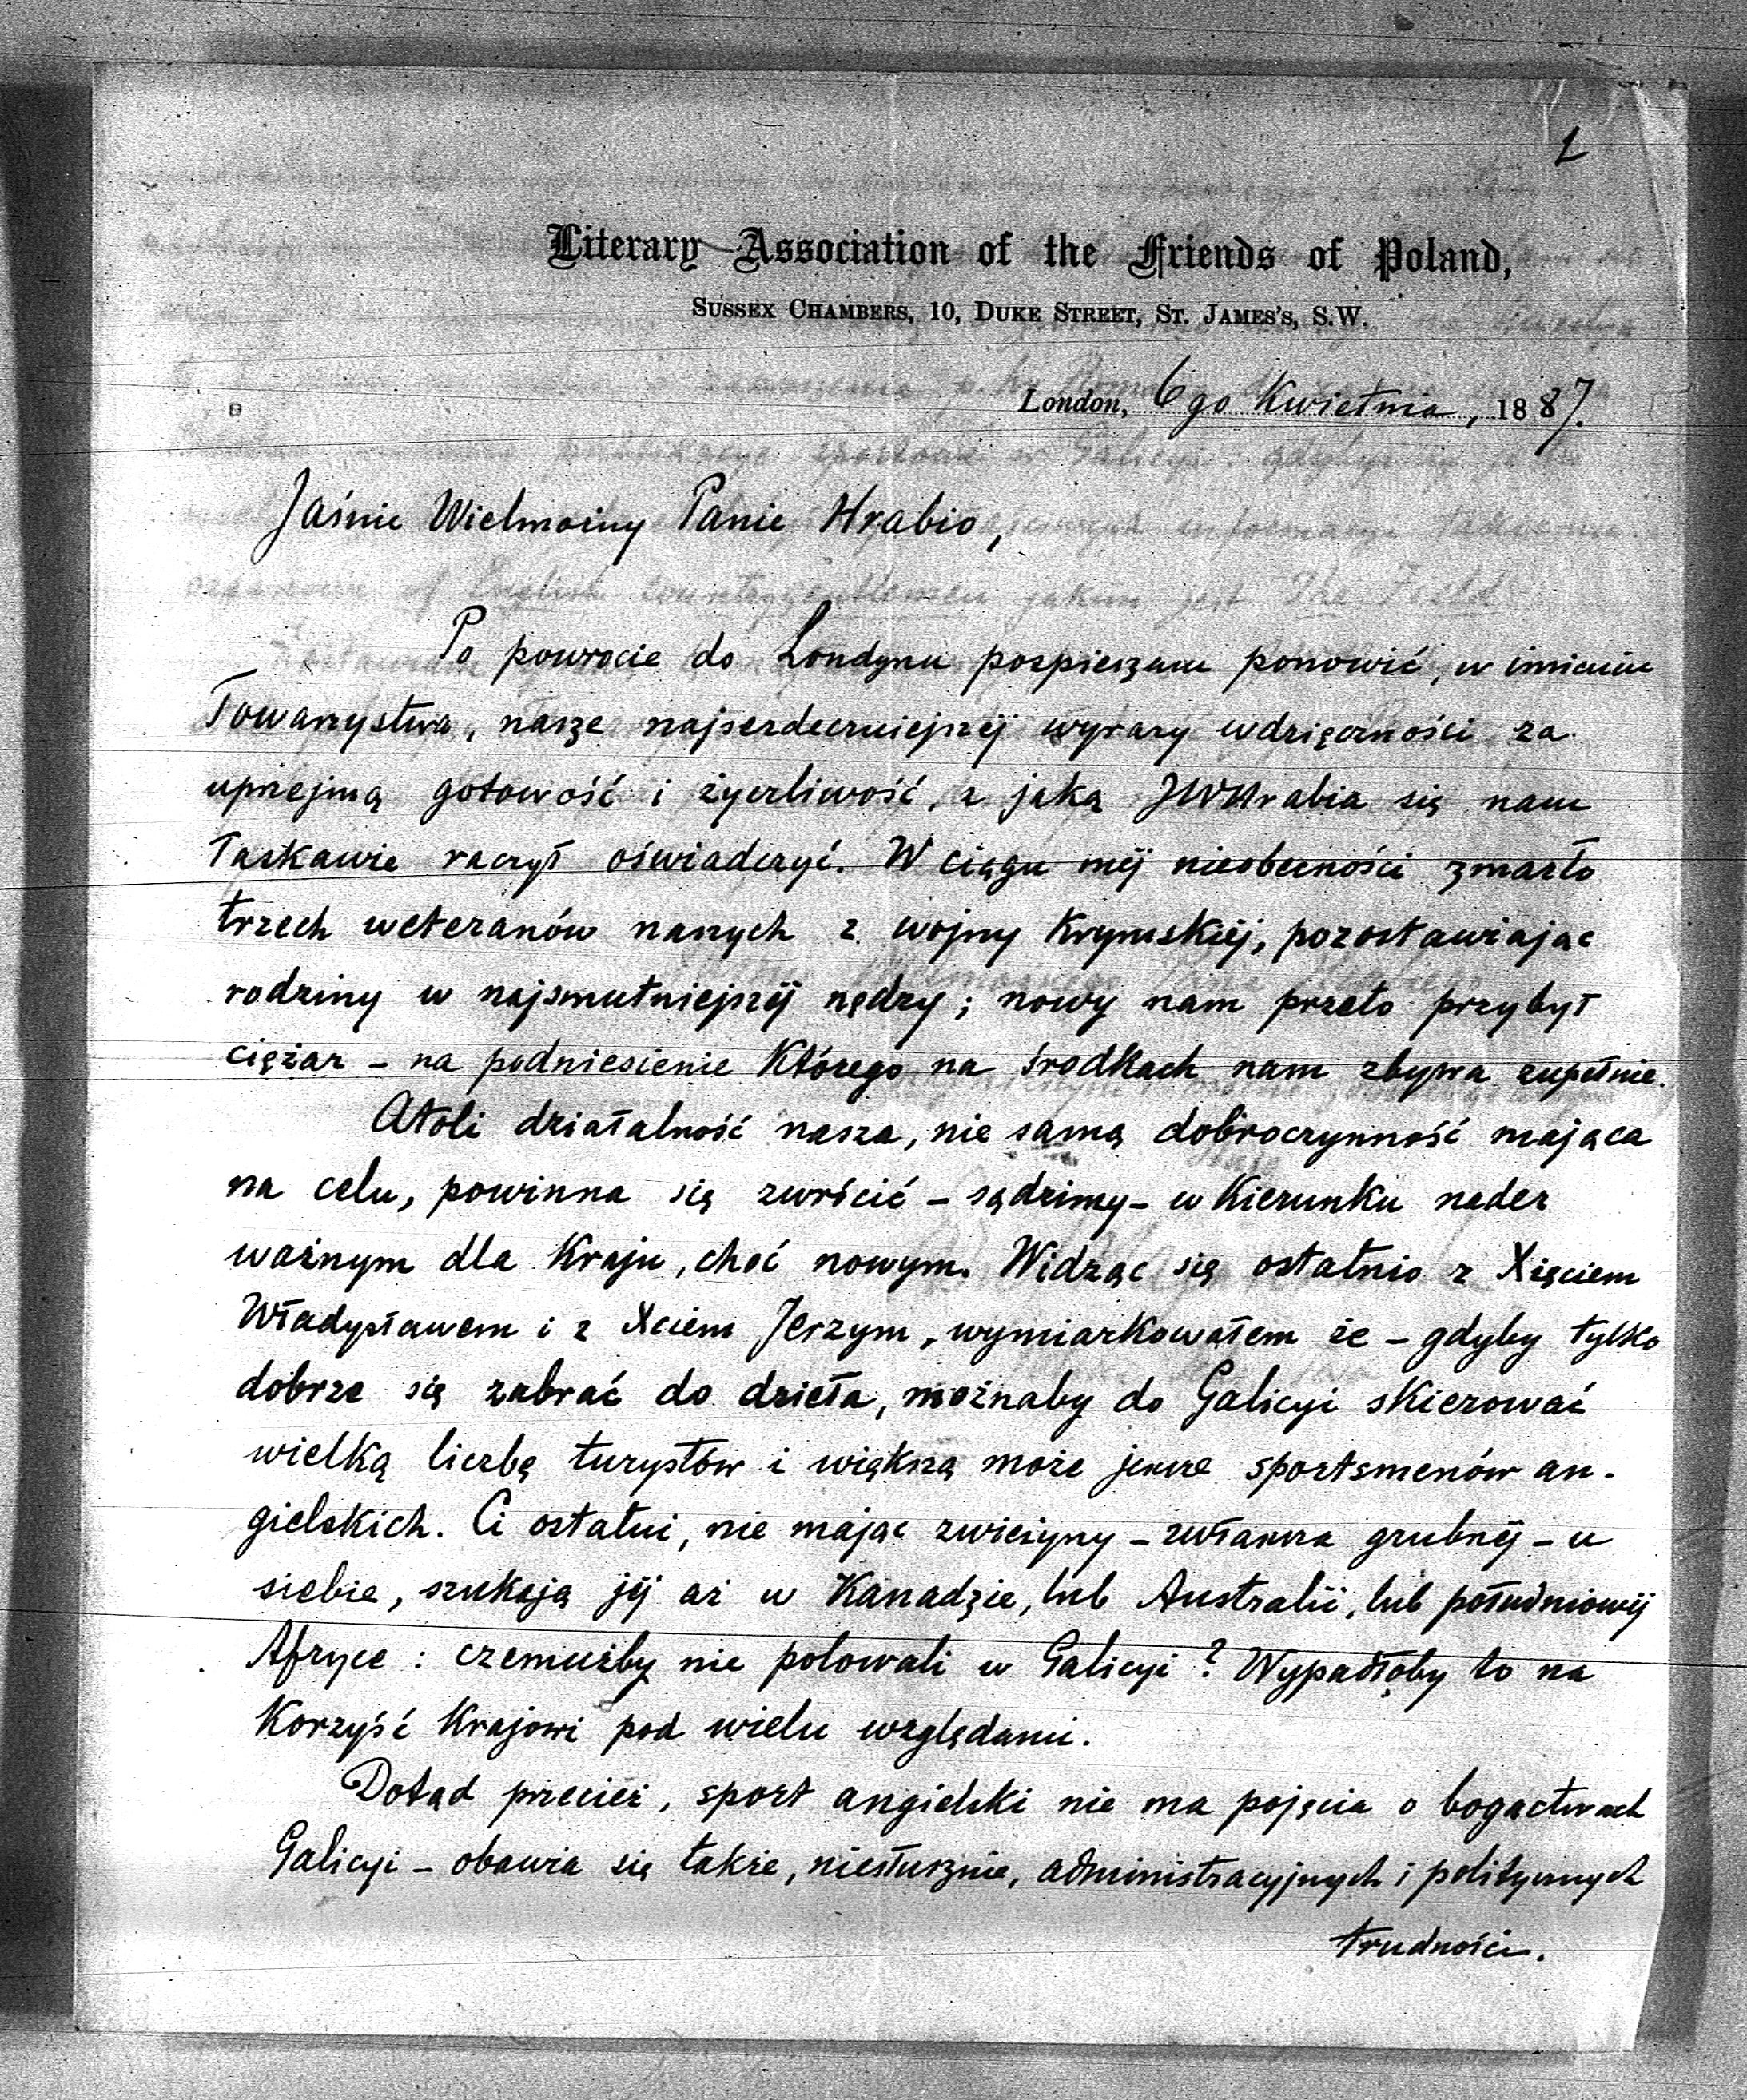 1
Literary Association of the Friends of Poland,
SUSSEX CHAMBERS, 10, DUKE STREET, ST. JAMES'S, S.W.
London, 6go Kwietnia, 1887.
Jaśnie Wielmożny Panie Hrabio,
Po powrocie do Londynu pospieszam ponowić, w imieniu
Towarzystwa, nasze najserdeczniejszéj wyrazy wdzięczności za
uprzejmą gotowość i życzliwość, z jaką JWHrabia się nam
łaskawie raczył oświadczyć. W ciągu méj nieobecności zmarło
trzech weteranów naszych z wojny Krymskiéj, pozostawiając
rodziny w najsmutniejszéj nędzy; nowy nam przeto przybył
ciężar – na podniesienie którego na środkach nam zbywa zupełnie.
Atoli działalność nasza, nie samą dobroczynność mająca
na celu, powinna się zwrócić – sądzimy – w kierunku nader
ważnym dla Kraju, choć nowym. Widząc się ostatnio z Xięciem
Władysławem i z Xciem Jerzym, wymiarkowałem że – gdyby tylko
dobrze się zabrać do dzieła, możnaby do Galicyi skierować
wielką liczbę turystów i większą może jeszcze sportsmenów an-
gielskich. Ci ostatni, nie mając zwierzyny – zwłaszcza grubéj – u
siebie, szukają jéj aż w Kanadzie, lub Australii, lub południowéj
Afryce : czemużby nie polowali w Galicyi ? Wypadłoby to na
Korzyść Krajowi pod wielu względami.
Dotąd przecież, sport angielski nie ma pojęcia o bogactwach
Galicyi – obawia się także, niesłusznie, administracyjnych i politycznych
trudności.